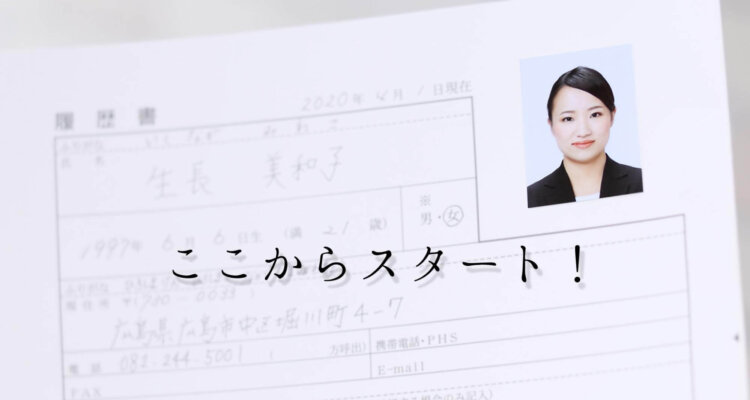 2020年 4月 1日現在
履歴書
ふりがな
氏名 生長 美和子
※
男・女
1997年 6月 6日生 (満 21 歳)
ここからスタート！
ふりがな
現住所 〒730-0033
広島県広島市中区堀川町4-7
電話 082-244-5001 ( 方呼出)
携帯電話・PHS
E-mail
FAX